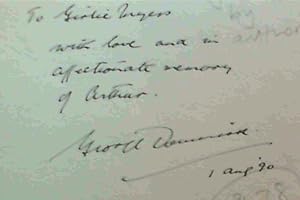 To Girlie Myers
with love and in
affectionate memory
of Arthur.
George
1 Aug '90
by
author